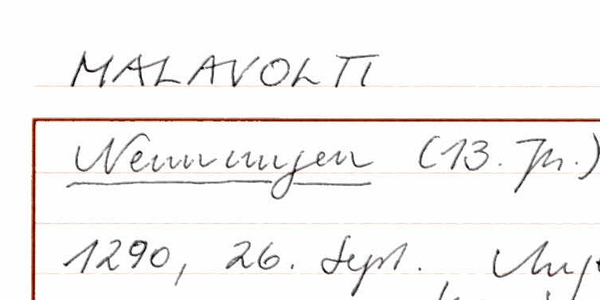 MALAVOLTI
Nennungen (13. Jh.)
1290, 26. Sept.